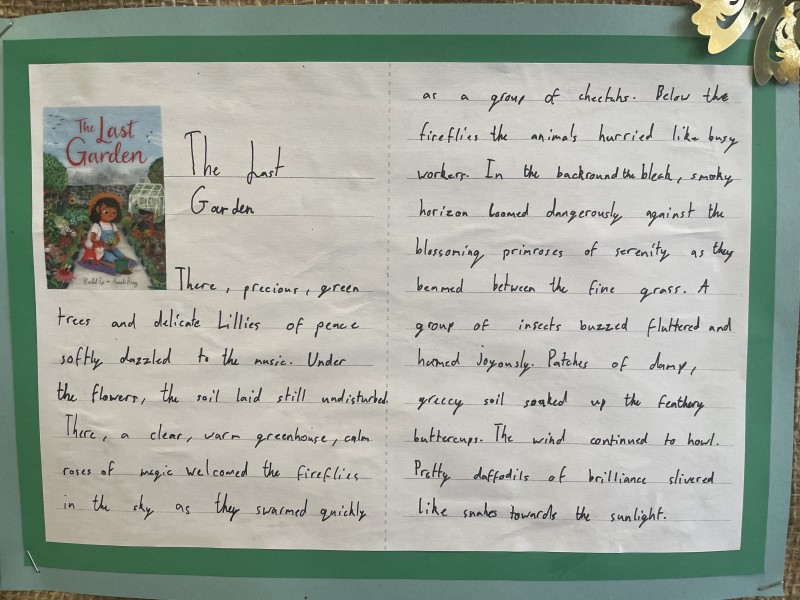 The Last
Garden
The Last
Garden
There, precious, green
trees and delicate Lillies of peace
softly dazzled to the music. Under
the flowers, the soil laid still undisturbed.
There, a clear, warm greenhouse, calm
roses of magic welcomed the fireflies
in the sky as they swarmed quickly
as a group of cheetahs. Below the
fireflies the animals hurried like busy
workers. In the backround the bleak, smoky
horizon loomed dangerously against the
blossoming primroses of serenity as they
beamed between the fine grass. A
group of insects buzzed fluttered and
humed joyously. Patches of damp,
greccy soil soaked up the feathery
buttercups. The wind continued to howl.
Pretty daffodils of brilliance slivered
like snakes towards the sunlight.